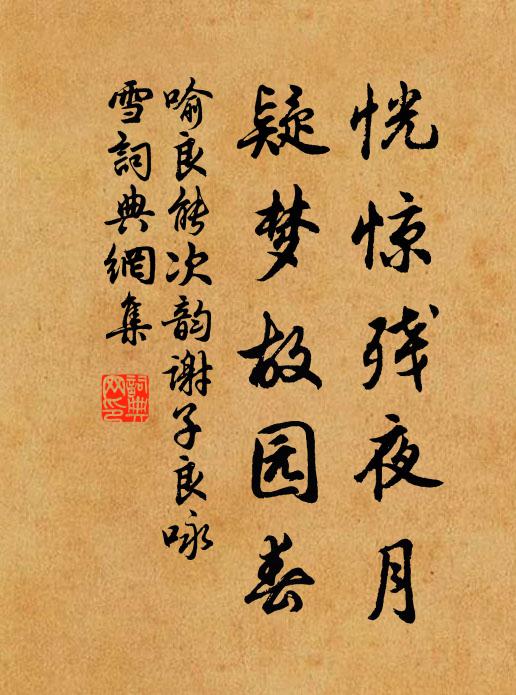 恍惊残夜月
疑梦故园春
喻良能次韵谢子良咏
雪詞典網集
詞典網印